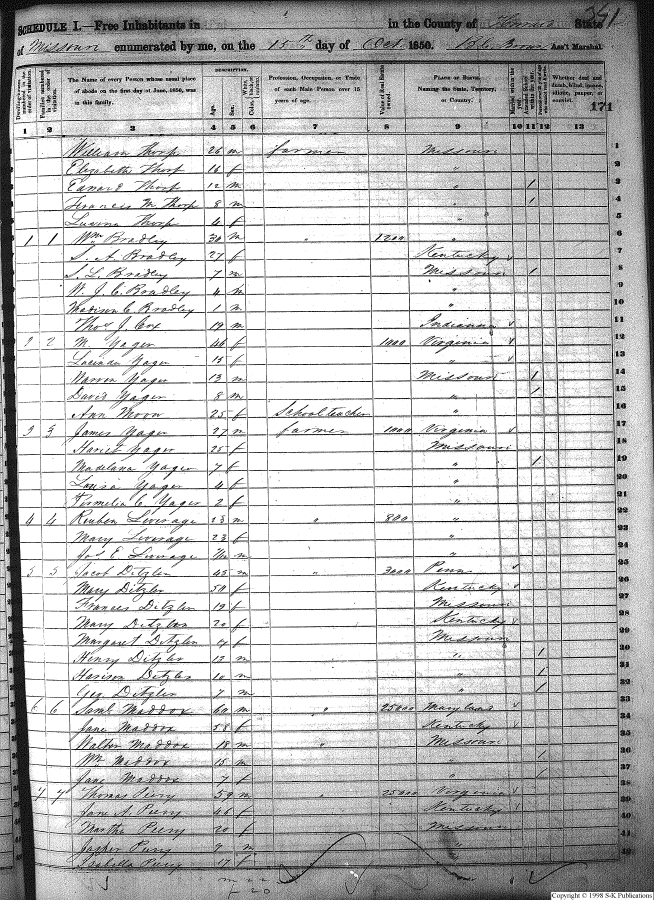 SCHEDULE I.—Free Inhabitants in in the County of State 341
of Missouri enumerated by me, on the 15th day of Oct 1850. Ass't Marshal
DESCRIPTION.
Dwelling-houses numbered in the order of visitation. Families numbered in the order of visitation. The Name of every Person whose usual place of abode on the first day of June, 1850, was in this family. Age. Sex. Color, Profession, Occupation, or Trade of each Male Person over 15 years of age. Value of Real Estate owned. Place of Birth. Naming the State, Territory, or Country. Married within the year. Whether deaf and dumb, blind, insane, idiotic, pauper, or convict. 171
1 2 3 4 5 6 7 8 9 10 11 12 13
William Thorp 26 m farmer Missouri 1
Elizabeth Thorp 16 f " 2
Edward Thorp 12 m " 1 3
Francis M Thorp 8 m " 1 4
Luvina Thorp 4 f " 5
1 1 Wm Bradley 30 m " 1200 " 6
S. A. Bradley 27 f Kentucky 7
S. L. Bradley 7 m Missouri 1 8
W. J. C. Bradley 4 m " 9
Madison C. Bradley 1 m " 10
Thos J. Cox 19 m Indianna 11
2 2 M. Yager 46 f 1000 Virginia 12
Lucinda Yager 15 f " 13
Warren Yager 13 m Missouri 1 14
David Yager 8 m " 1 15
Ann Moon 25 f School teacher " 16
3 3 James Yager 27 m farmer 1000 Virginia 17
Hariet Yager 25 f Missouri 18
Madelana Yager 7 f " 1 19
Louisa Yager 4 f " 20
Permelia C Yager 2 f " 21
4 4 Reuben Liverage 23 m " 800 " 22
Mary Liverage 23 f " 23
Jos E Liverage m " 24
5 5 Jacob Ditzler 43 m " 3000 Penn 25
Mary Ditzler 50 f Kentucky 26
Frances Ditzler 19 f Missouri 27
Mary Ditzler 20 f Kentucky 28
Margaret Ditzler 14 f Missouri 29
Henry Ditzler 12 m " 1 30
Harison Ditzler 10 m " 1 31
Geo Ditzler 7 m " 1 32
6 6 Saml Maddox 60 m " 25000 Maryland 33
Jane Maddox 58 f Kentucky 34
Walter Maddox 18 m " Missouri 35
Wm Maddox 15 m " 1 36
Jane Maddox 7 f " 1 37
7 7 Thomas Perry 59 m " 25000 Virginia 38
Jane A. Perry 46 f Kentucky 39
Martha Perry 20 f Missouri 40
Jasper Perry 9 m " 41
Isabella Perry 17 f 42
Copyright © 1998 S-K Publications